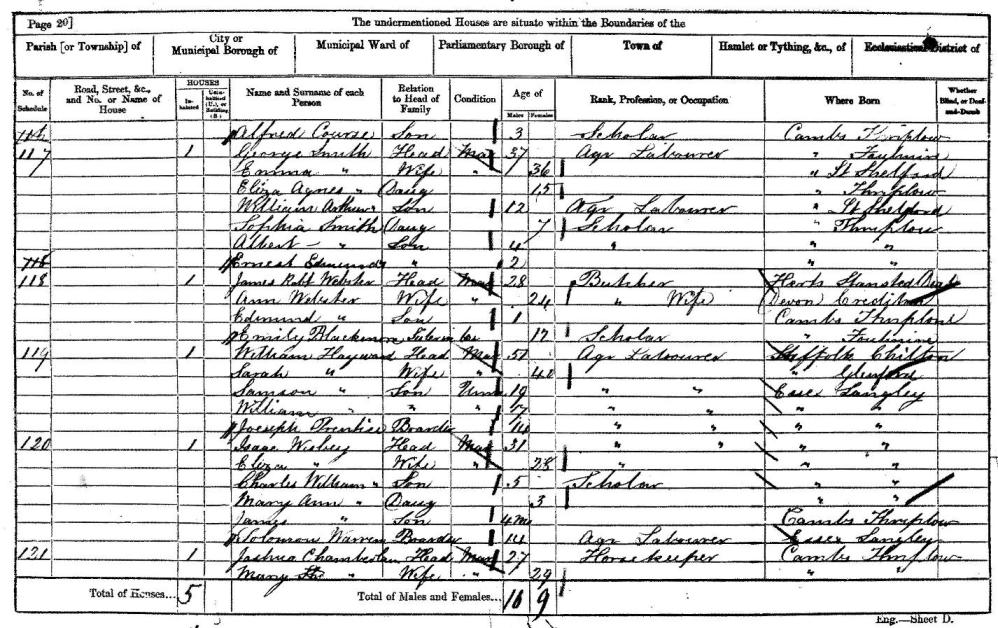 Page 20]
The undermentioned Houses are situate within the Boundaries of the
Parish [or Township] of City or Municipal Borough of Municipal Ward of Parliamentary Borough of Town of Hamlet or Tything, &c., of Ecclesiastical District of
No. of Schedule Road, Street, &c., and No. or Name of House HOUSES Inhabited Uninhabited (U.), or Building (B.) Name and Surname of each Person Relation to Head of Family Condition Age of Males Females Rank, Profession, or Occupation Where Born Whether Blind, or Deaf-and-Dumb
116 Alfred Course Son 3 Scholar Cambs Thriplow
117 1 George Smith Head Mar 37 Agr Labourer " Foulmire
Emma " Wife " 36 " St Shelford
Eliza Agnes " Daug 15 " Thriplow
William Arthur " Son 12 Agr Labourer " St Shelford
Sophia Smith Daug 7 Scholar " Thriplow
Albert " Son 4 " " "
118 Ernest Edmund " " 2 " "
118 1 James Robt Webster Head Mar 28 Butcher Herts Stansted
Ann Webster Wife " 24 " Wife Devon Crediton
Edmund " Son 1 Cambs Thriplow
Emily Blackmon 17 Scholar " Foulmire
119 1 William Hayward Head Mar 51 Agr Labourer Suffolk Chilton
Sarah " Wife " 40 "
Samson " Son Unm 19 " " Essex Langley
William " " " 17 " " " "
Joeseph Prentice Boarder 14 " " " "
120 1 Isaac Wisbey Head Mar 31 " " " "
Eliza " Wife " 28 " " "
Charles William " Son 5 Scholar " "
Mary Ann " Daug 3 " "
James " Son 4m Cambs Thriplow
Solomon Warren Boarder 14 Agr Labourer Essex Langley
121 1 Joshua Chamberlain Head Mar 27 Horsekeeper Cambs Thriplow
Mary " Wife " 29 " "
Total of Houses... 5 Total of Males and Females... 16 9
Eng.—Sheet D.